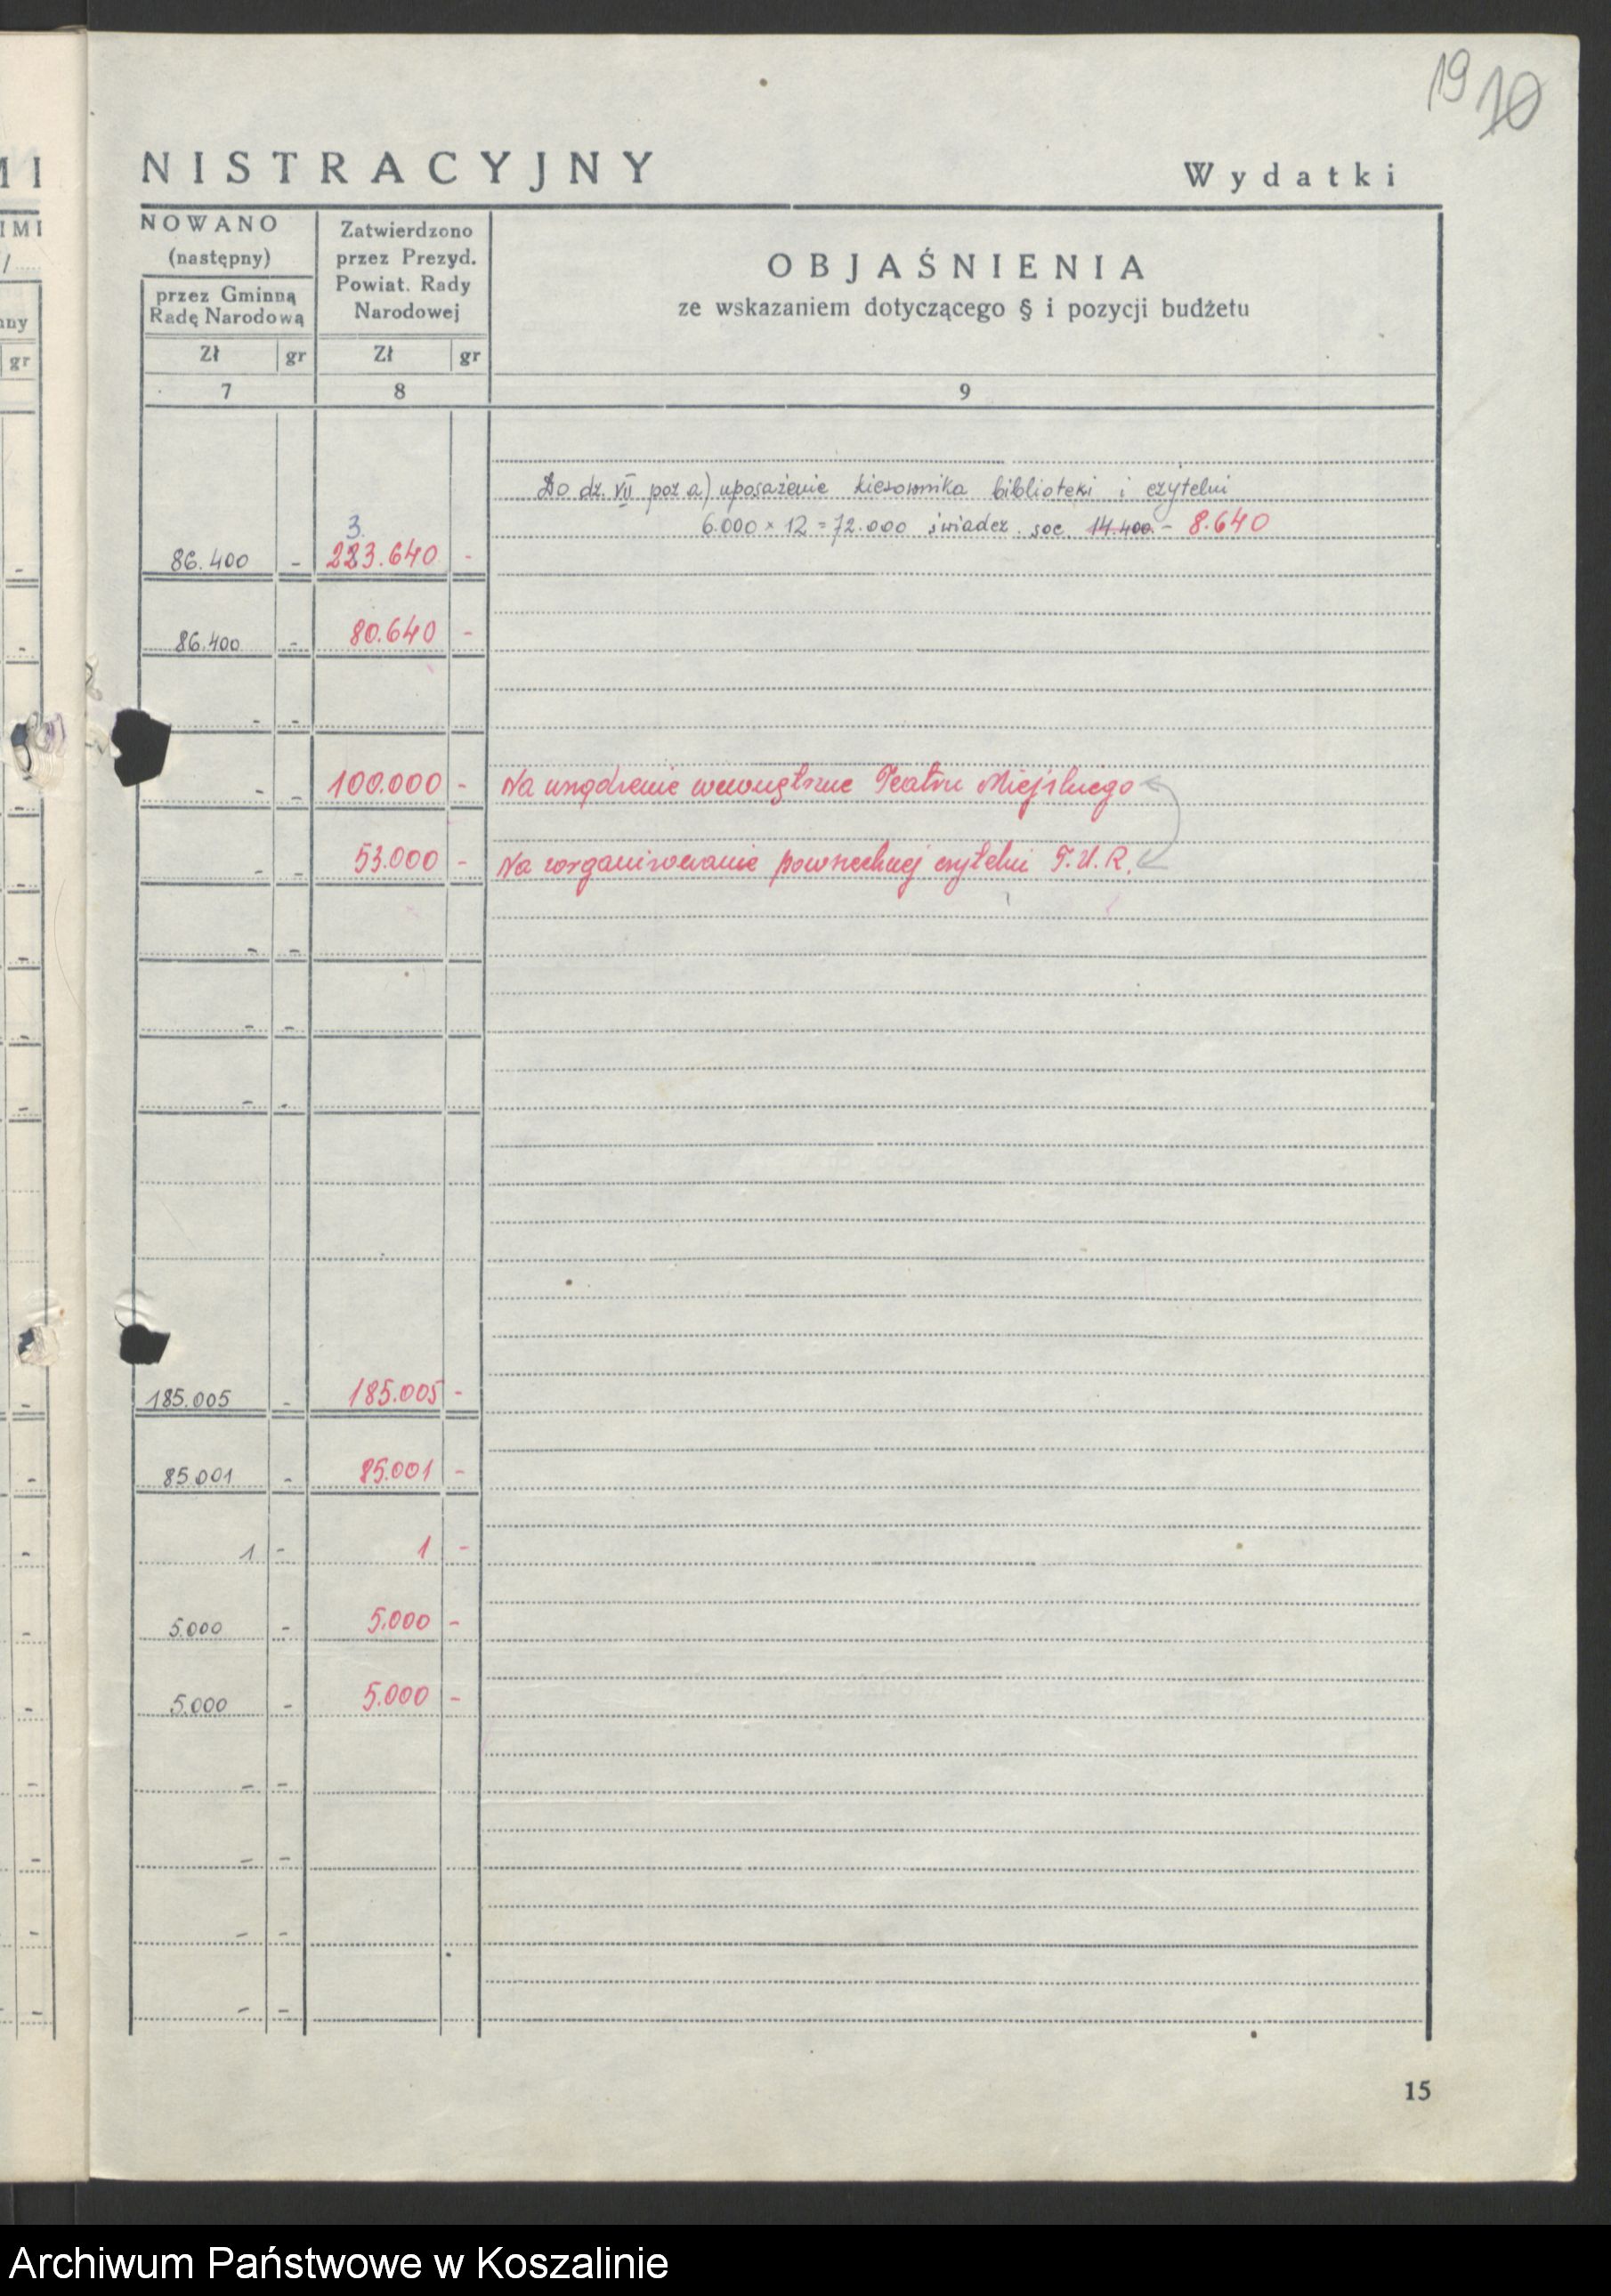 19 10
NISTRACYJNY
Wydatki
MI
IMI
NOWANO
(następny)
przez Gminną
Radę Narodową
Zatwierdzono
przez Prezyd.
Powiat. Rady
Narodowej
OBJAŚNIENIA
ze wskazaniem dotyczącego § i pozycji budżetu
gr
Zł gr Zł gr
7 8 9
Do dz. VII poz a) uposażenie kierownika biblioteki i czytelni
6.000 × 12 = 72.000 świadcz. soc. 14.400.- 8.640
3.
86.400 - 223.640 -
86.400 - 80.640 -
- -
- - 100.000 - Na urządzenie wewnętrzne Teatru Miejskiego
- - 53.000 - Na zorganizowanie powszechnej czytelni T.U.R.
- -
- -
- -
185.005 - 185.005 -
85.001 - 85.001 -
1 - 1 -
5.000 - 5.000 -
5.000 - 5.000 -
- -
- -
- -
- -
15
Archiwum Państwowe w Koszalinie